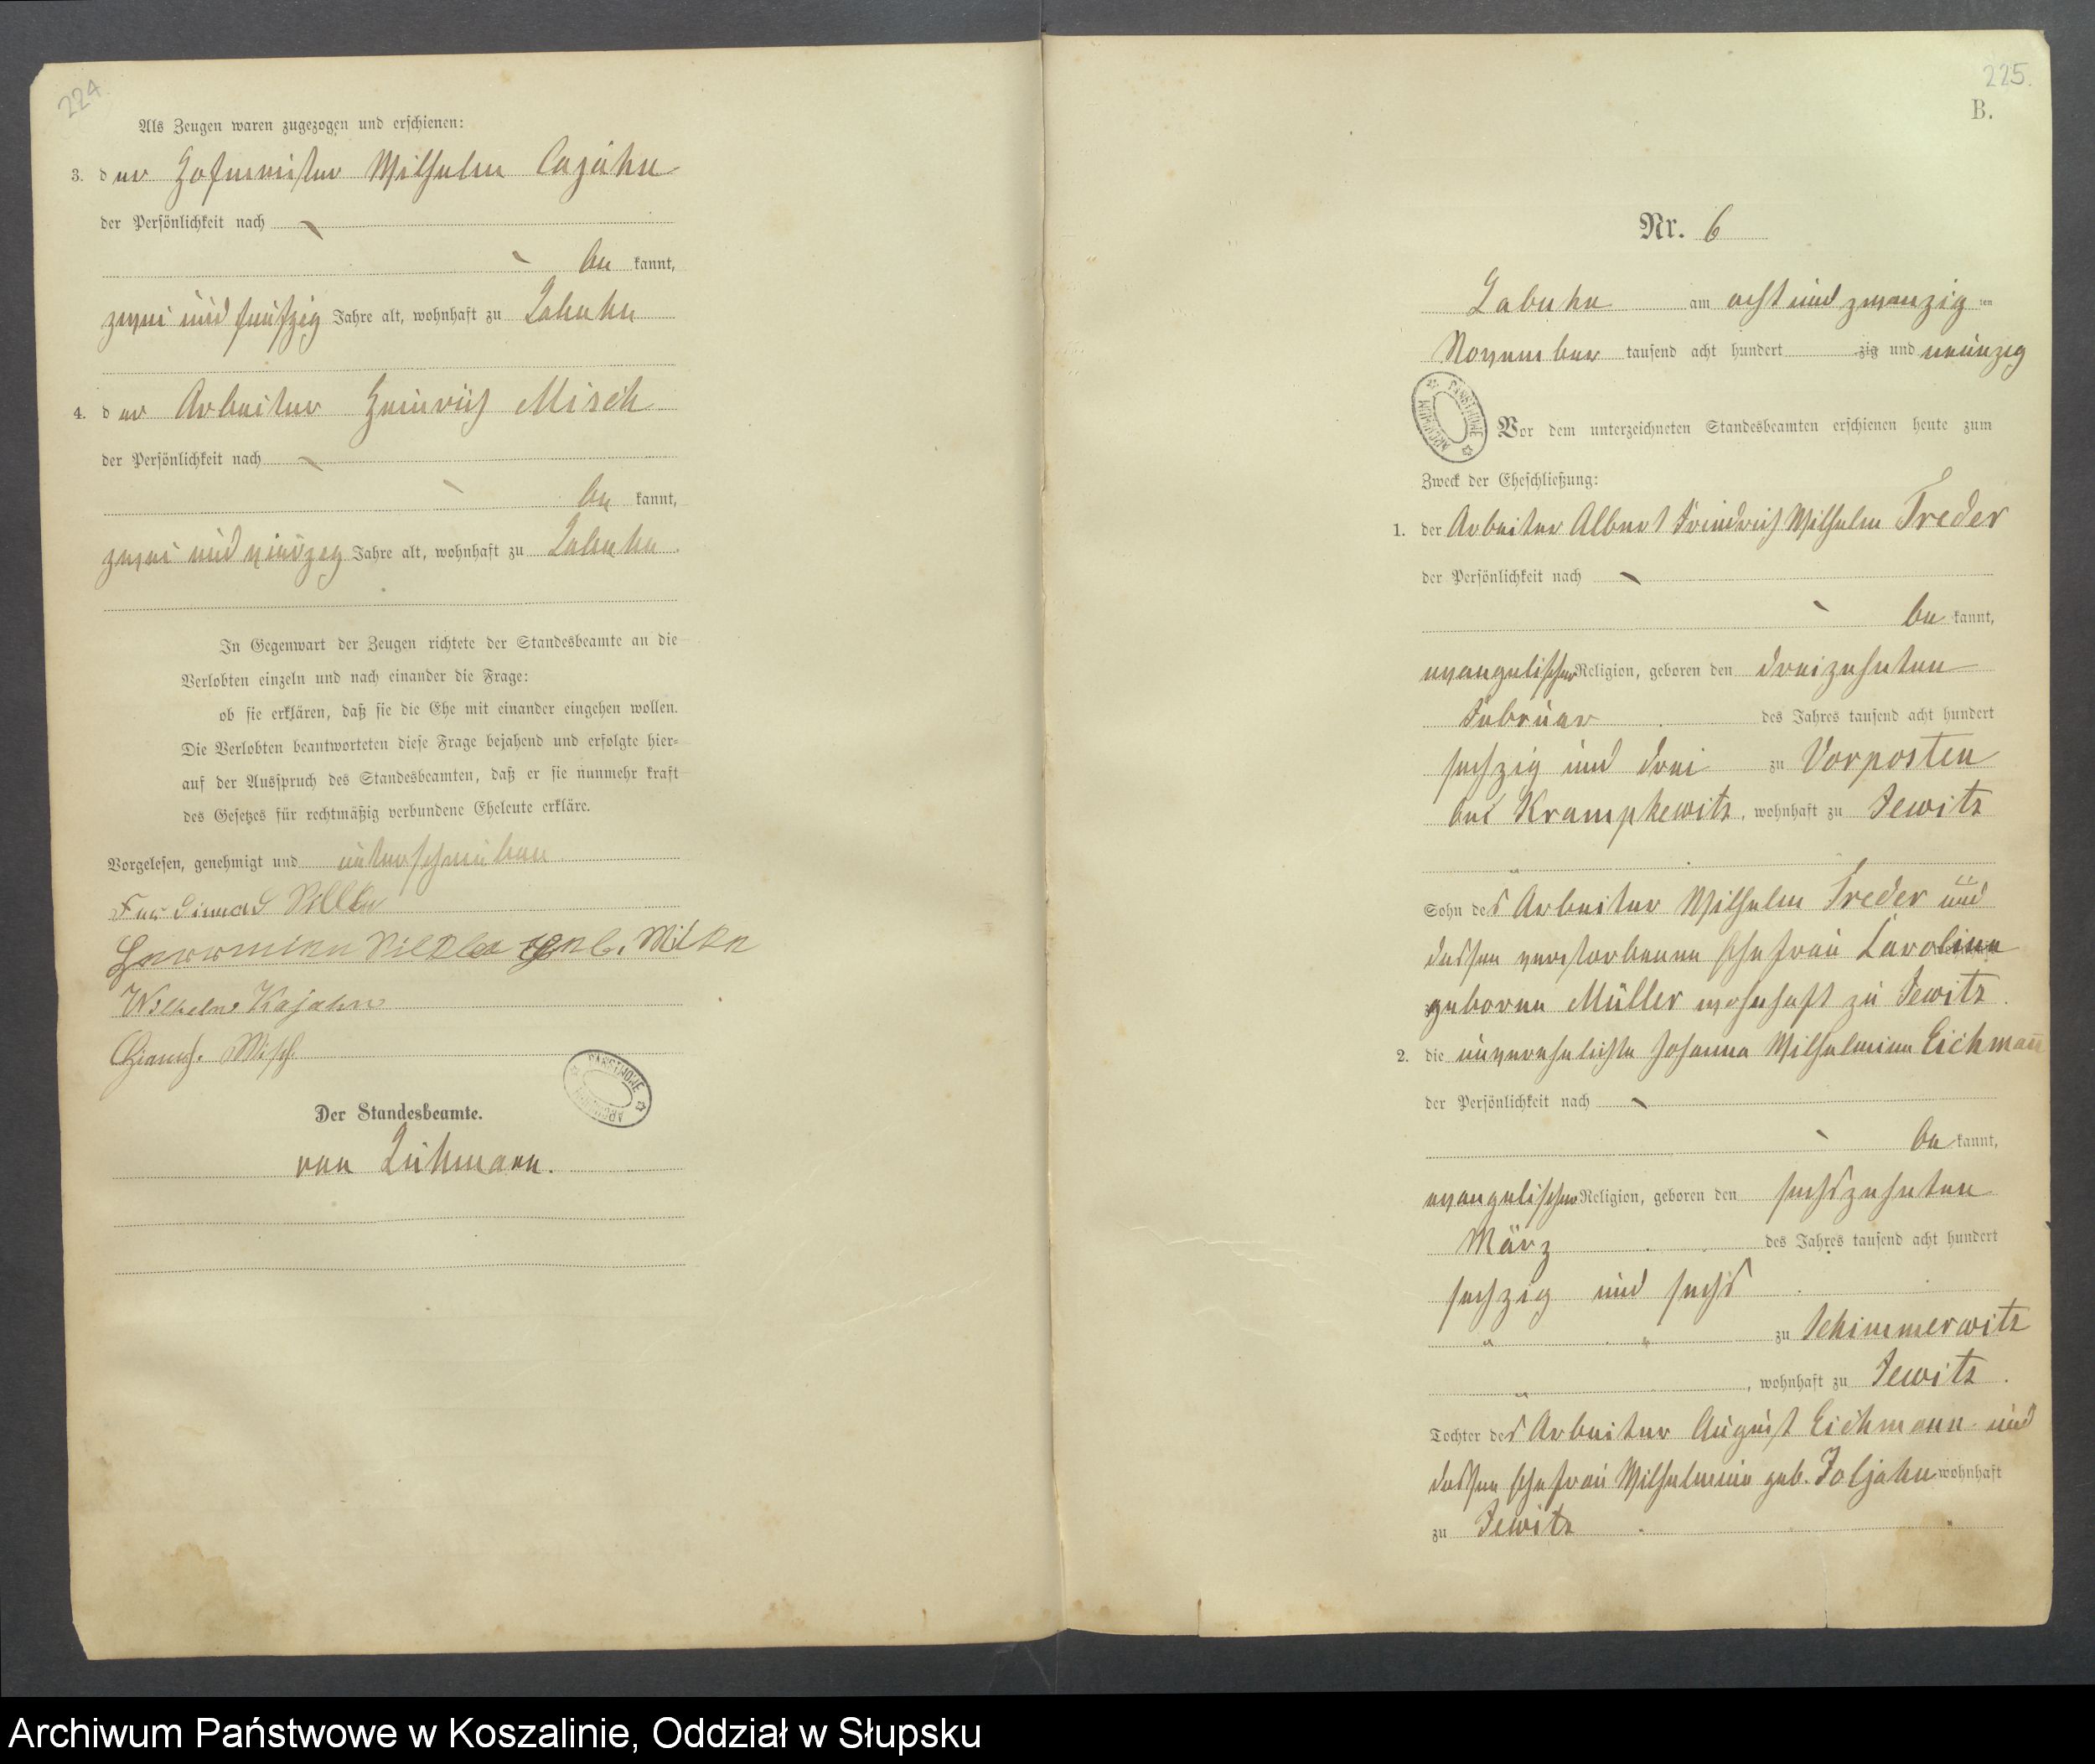 224.
Als Zeugen waren zugezogen und erschienen:
3. der Hofmeister Wilhelm Cajahn
der Persönlichkeit nach
be kannt,
zwei und fünfzig Jahre alt, wohnhaft zu Labuhn
4. der Arbeiter Heinrich Misch
der Persönlichkeit nach
be kannt,
zwei und vierzig Jahre alt, wohnhaft zu Labuhn.
In Gegenwart der Zeugen richtete der Standesbeamte an die
Verlobten einzeln und nach einander die Frage:
ob sie erklären, daß sie die Ehe mit einander eingehen wollen.
Die Verlobten beantworteten diese Frage bejahend und erfolgte hier=
auf der Ausspruch des Standesbeamten, daß er sie nunmehr kraft
des Gesetzes für rechtmäßig verbundene Eheleute erkläre.
Vorgelesen, genehmigt und unterschrieben
Ferdinand
geb.
Wilhelm Kajahn
Misch
Der Standesbeamte.
von
225.
B.
Nr. 6
Labuhn am acht und zwanzig ten
November tausend acht hundert zig und neunzig
Vor dem unterzeichneten Standesbeamten erschienen heute zum
Zweck der Eheschließung:
1. der Arbeiter Albert Friedrich Wilhelm Treder
der Persönlichkeit nach
be kannt,
evangelischer Religion, geboren den dreizehnten
Februar des Jahres tausend acht hundert
sechzig und drei zu Vorposten
bei Krampkewitz, wohnhaft zu Jewitz
Sohn des Arbeiter Wilhelm Treder und
dessen verstorbenen Ehefrau Caroline
geborene Müller wohnhaft zu Jewitz.
2. die unverehelichte Johanna Wilhelmine Eichmann
der Persönlichkeit nach
be kannt,
evangelischer Religion, geboren den sechszehnten
März des Jahres tausend acht hundert
sechzig und sechs
zu Schimmerwitz
, wohnhaft zu Jewitz.
Tochter des Arbeiter August Eichmann und
dessen Ehefrau Wilhelmine geb. Joljahn wohnhaft
zu Jewitz
ARCHIWUM PAŃSTWOWE
Archiwum Państwowe w Koszalinie, Oddział w Słupsku